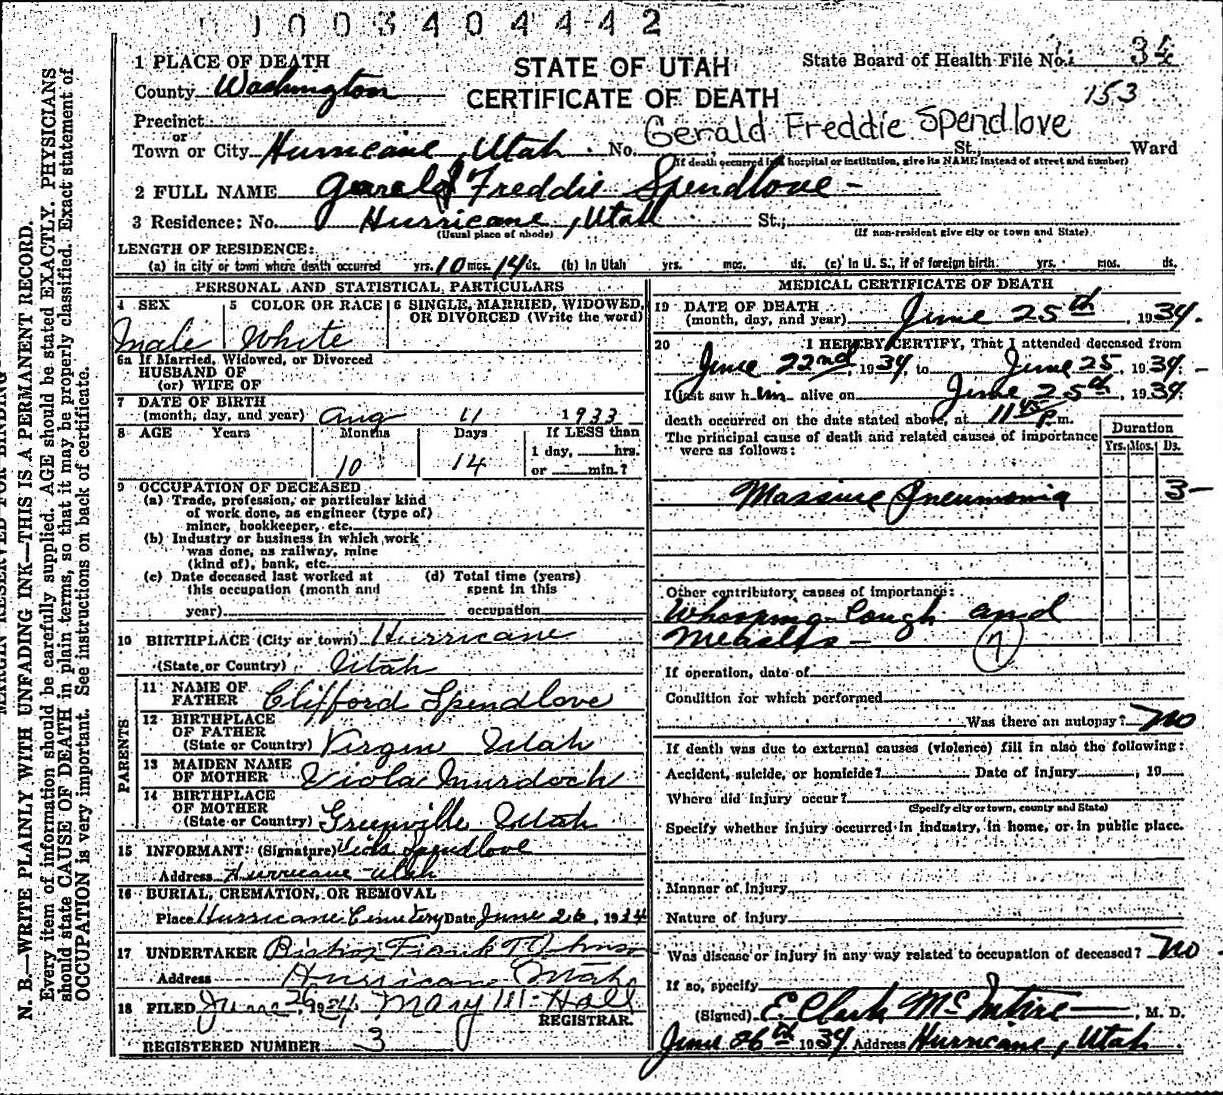 1 0 0 3 4 0 4 4 4 2
1 PLACE OF DEATH
County Washington
Precinct
or
Town or City Hurricane, Utah. No. St., Ward
(If death occurred in a hospital or institution, give its NAME instead of street and number)
STATE OF UTAH
CERTIFICATE OF DEATH
State Board of Health File No. 34
153
Gerald Freddie Spendlove
2 FULL NAME Gerald Freddie Spendlove -
3 Residence: No. Hurricane, Utah St.,
(Usual place of abode) (If non-resident give city or town and State)
LENGTH OF RESIDENCE:
(a) In city or town where death occurred yrs. 10 mos. 14 ds. (b) In Utah yrs. mos. ds. (c) In U. S., if of foreign birth. yrs. mos. ds.
PERSONAL AND STATISTICAL PARTICULARS
4 SEX
Male
5 COLOR OR RACE
White
6 SINGLE, MARRIED, WIDOWED, OR DIVORCED (Write the word)
6a If Married, Widowed, or Divorced
HUSBAND OF
(or) WIFE OF
7 DATE OF BIRTH
(month, day, and year) Aug 11 1933
8 AGE Years Months Days If LESS than
10 14 1 day, hrs.
or min.?
9 OCCUPATION OF DECEASED
(a) Trade, profession, or particular kind
of work done, as engineer (type of)
miner, bookkeeper, etc.
(b) Industry or business in which work
was done, as railway, mine
(kind of), bank, etc.
(c) Date deceased last worked at
this occupation (month and
year)
(d) Total time (years)
spent in this
occupation
10 BIRTHPLACE (City or town) Hurricane
(State or Country) Utah
PARENTS
11 NAME OF
FATHER Clifford Spendlove
12 BIRTHPLACE
OF FATHER
(State or Country) Virgin Utah
13 MAIDEN NAME
OF MOTHER Viola Murdoch
14 BIRTHPLACE
OF MOTHER
(State or Country) Greenville Utah
15 INFORMANT (Signature) Spendlove
Address Hurricane Utah
16 BURIAL, CREMATION, OR REMOVAL
Place Hurricane Cemetery Date June 26, 1934
17 UNDERTAKER Bishop Frank T Johnson
Address Hurricane Utah
18 FILED June 26 1934 Mary M. Hall
REGISTRAR
REGISTERED NUMBER 3
MEDICAL CERTIFICATE OF DEATH
19 DATE OF DEATH
(month, day, and year) June 25th, 1934.
20 I HEREBY CERTIFY, That I attended deceased from
June 22nd, 1934, to June 25, 1934. -
I last saw him alive on June 25th, 1934.
death occurred on the date stated above, at 11 p.m.
The principal cause of death and related causes of importance
were as follows:
Duration
Yrs. Mos. Ds.
Massive Pneumonia 3 -
Other contributory causes of importance:
Whooping Cough and
Measles - 7
If operation, date of
Condition for which performed
Was there an autopsy? No
If death was due to external causes (violence) fill in also the following:
Accident, suicide, or homicide? Date of injury , 19
Where did injury occur?
(Specify city or town, county and State)
Specify whether injury occurred in industry, in home, or in public place.
Manner of Injury
Nature of injury
Was disease or injury in any way related to occupation of deceased? No
If so, specify
(Signed) E. Clark McIntire, M. D.
June 26th 1934 Address Hurricane, Utah
N. B.—WRITE PLAINLY WITH UNFADING INK—THIS IS A PERMANENT RECORD.
Every item of information should be carefully supplied. AGE should be stated EXACTLY. PHYSICIANS
should state CAUSE OF DEATH in plain terms, so that it may be properly classified. Exact statement of
OCCUPATION is very important. See instructions on back of certificate.